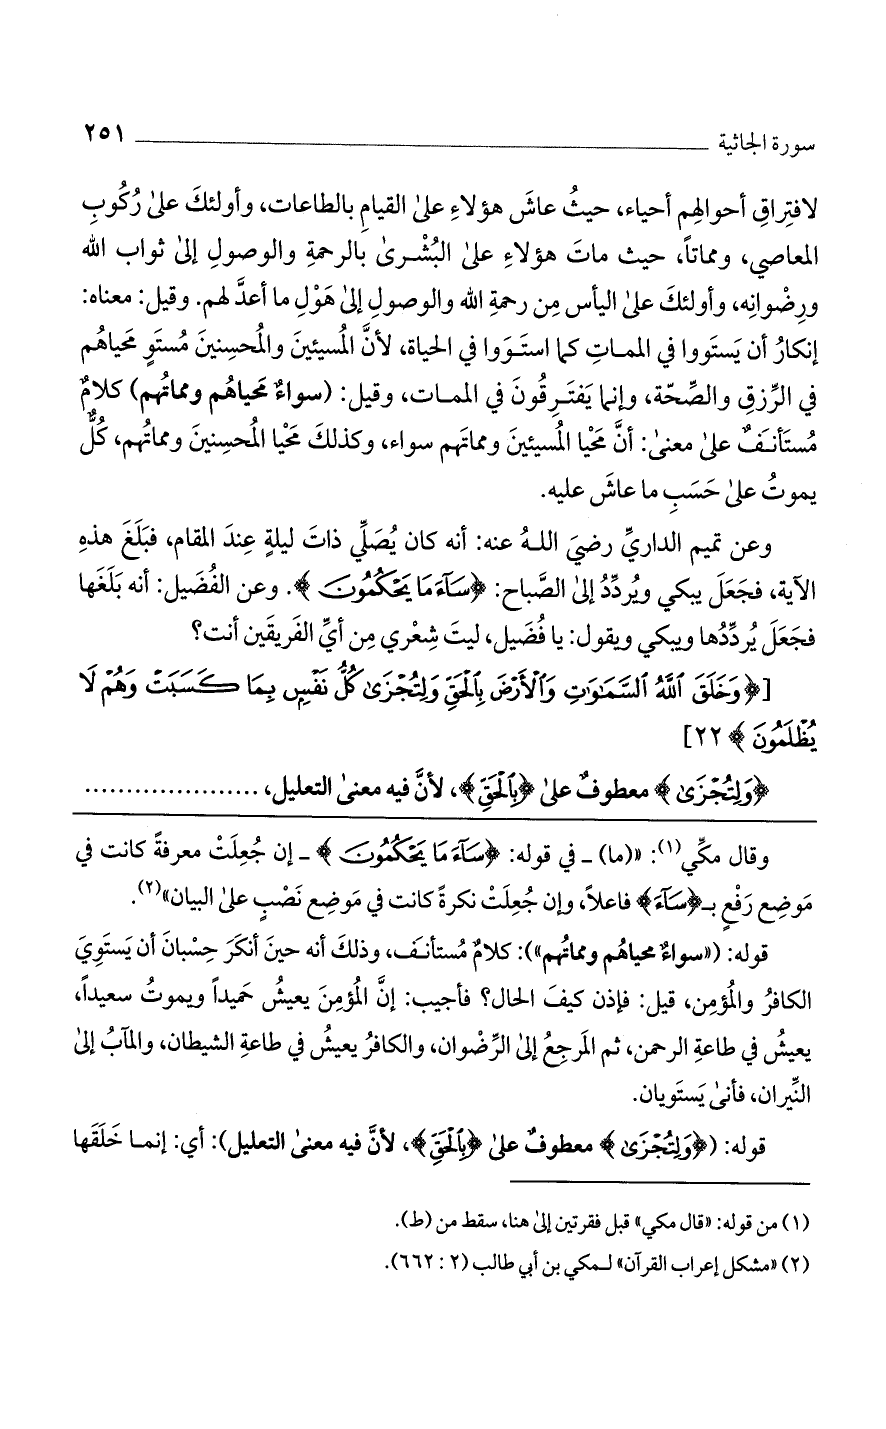 سورة الجاثية ٢٥١
لافتِراقِ أحوالِهم أحياء، حيثُ عاشَ هؤلاءِ علىٰ القيامِ بالطاعات، وأولئكَ علىٰ رُكُوبِ
المعاصي، ومماتاً، حيث ماتَ هؤلاءِ علىٰ البُشْرىٰ بالرحمةِ والوصولِ إلىٰ ثواب الله
ورِضْوانِه، وأولئكَ علىٰ اليأس مِن رحمةِ الله والوصولِ إلىٰ هَوْلِ ما أعدَّ لهم. وقيل: معناه:
إنكارُ أن يَستَووا في المماتِ كما استَوَوا في الحياة، لأنَّ المُسيئينَ والمُحسِنينَ مُستَوٍ مَحياهُم
في الرِّزقِ والصِّحّة، وإنما يَفتَرِقُونَ في الممات، وقيل: (سواءٌ مَحياهُم ومماتُهم) كلامٌ
مُستَأنَفٌ علىٰ معنىٰ: أنَّ مَحْيا المُسيئينَ ومماتَهم سواء، وكذلكَ مَحْيا المُحسنينَ ومماتُهم، كُلٌّ
يموتُ علىٰ حَسَبِ ما عاشَ عليه.
وعن تميم الداريِّ رضيَ اللهُ عنه: أنه كان يُصَلِّي ذاتَ ليلةٍ عِندَ المقام، فبَلَغَ هذهِ
الآية، فجَعَلَ يبكي ويُردِّدُ إلىٰ الصَّباح: ﴿سَآءَ مَا يَحْكُمُونَ﴾. وعن الفُضَيل: أنه بَلَغَها
فجَعَلَ يُردِّدُها ويبكي ويقول: يا فُضَيل، ليتَ شِعْري مِن أيِّ الفَريقَين أنت؟
[﴿وَخَلَقَ ٱللَّهُ ٱلسَّمَٰوَٰتِ وَٱلْأَرْضَ بِٱلْحَقِّ وَلِتُجْزَىٰ كُلُّ نَفْسٍۭ بِمَا كَسَبَتْ وَهُمْ لَا
يُظْلَمُونَ﴾ ٢٢]
﴿وَلِتُجْزَىٰ﴾ معطوفٌ علىٰ ﴿بِٱلْحَقِّ﴾، لأنَّ فيه معنىٰ التعليل، .....................
وقال مكّي(١): «(ما) ـ في قوله: ﴿سَآءَ مَا يَحْكُمُونَ﴾ ـ إن جُعِلَتْ معرفةً كانت في
مَوضِعِ رَفْعٍ بـ﴿سَآءَ﴾ فاعلاً، وإن جُعِلَتْ نكرةً كانت في مَوضِعِ نَصْبٍ علىٰ البيان»(٢).
قوله: («سواءٌ محياهُم ومماتُهم»): كلامٌ مُستأنَف، وذلكَ أنه حينَ أنكَرَ حِسْبانَ أن يَستَوِيَ
الكافرُ والمُؤمِن، قيل: فإذن كيفَ الحال؟ فأجيب: إنَّ المُؤمِنَ يعيشُ حَميداً ويموتُ سعيداً،
يعيشُ في طاعةِ الرحمن، ثم المَرجِعُ إلىٰ الرِّضْوان، والكافرُ يعيشُ في طاعةِ الشيطان، والمآبُ إلىٰ
النِّيران، فأنىٰ يَستَويان.
قوله: (﴿وَلِتُجْزَىٰ﴾ معطوفٌ علىٰ ﴿بِٱلْحَقِّ﴾، لأنَّ فيه معنىٰ التعليل): أي: إنما خَلَقَها
(١) من قوله: «قال مكي» قبل فقرتين إلىٰ هنا، سقط من (ط).
(٢) «مشكل إعراب القرآن» لـمكي بن أبي طالب (٢: ٦٦٢).